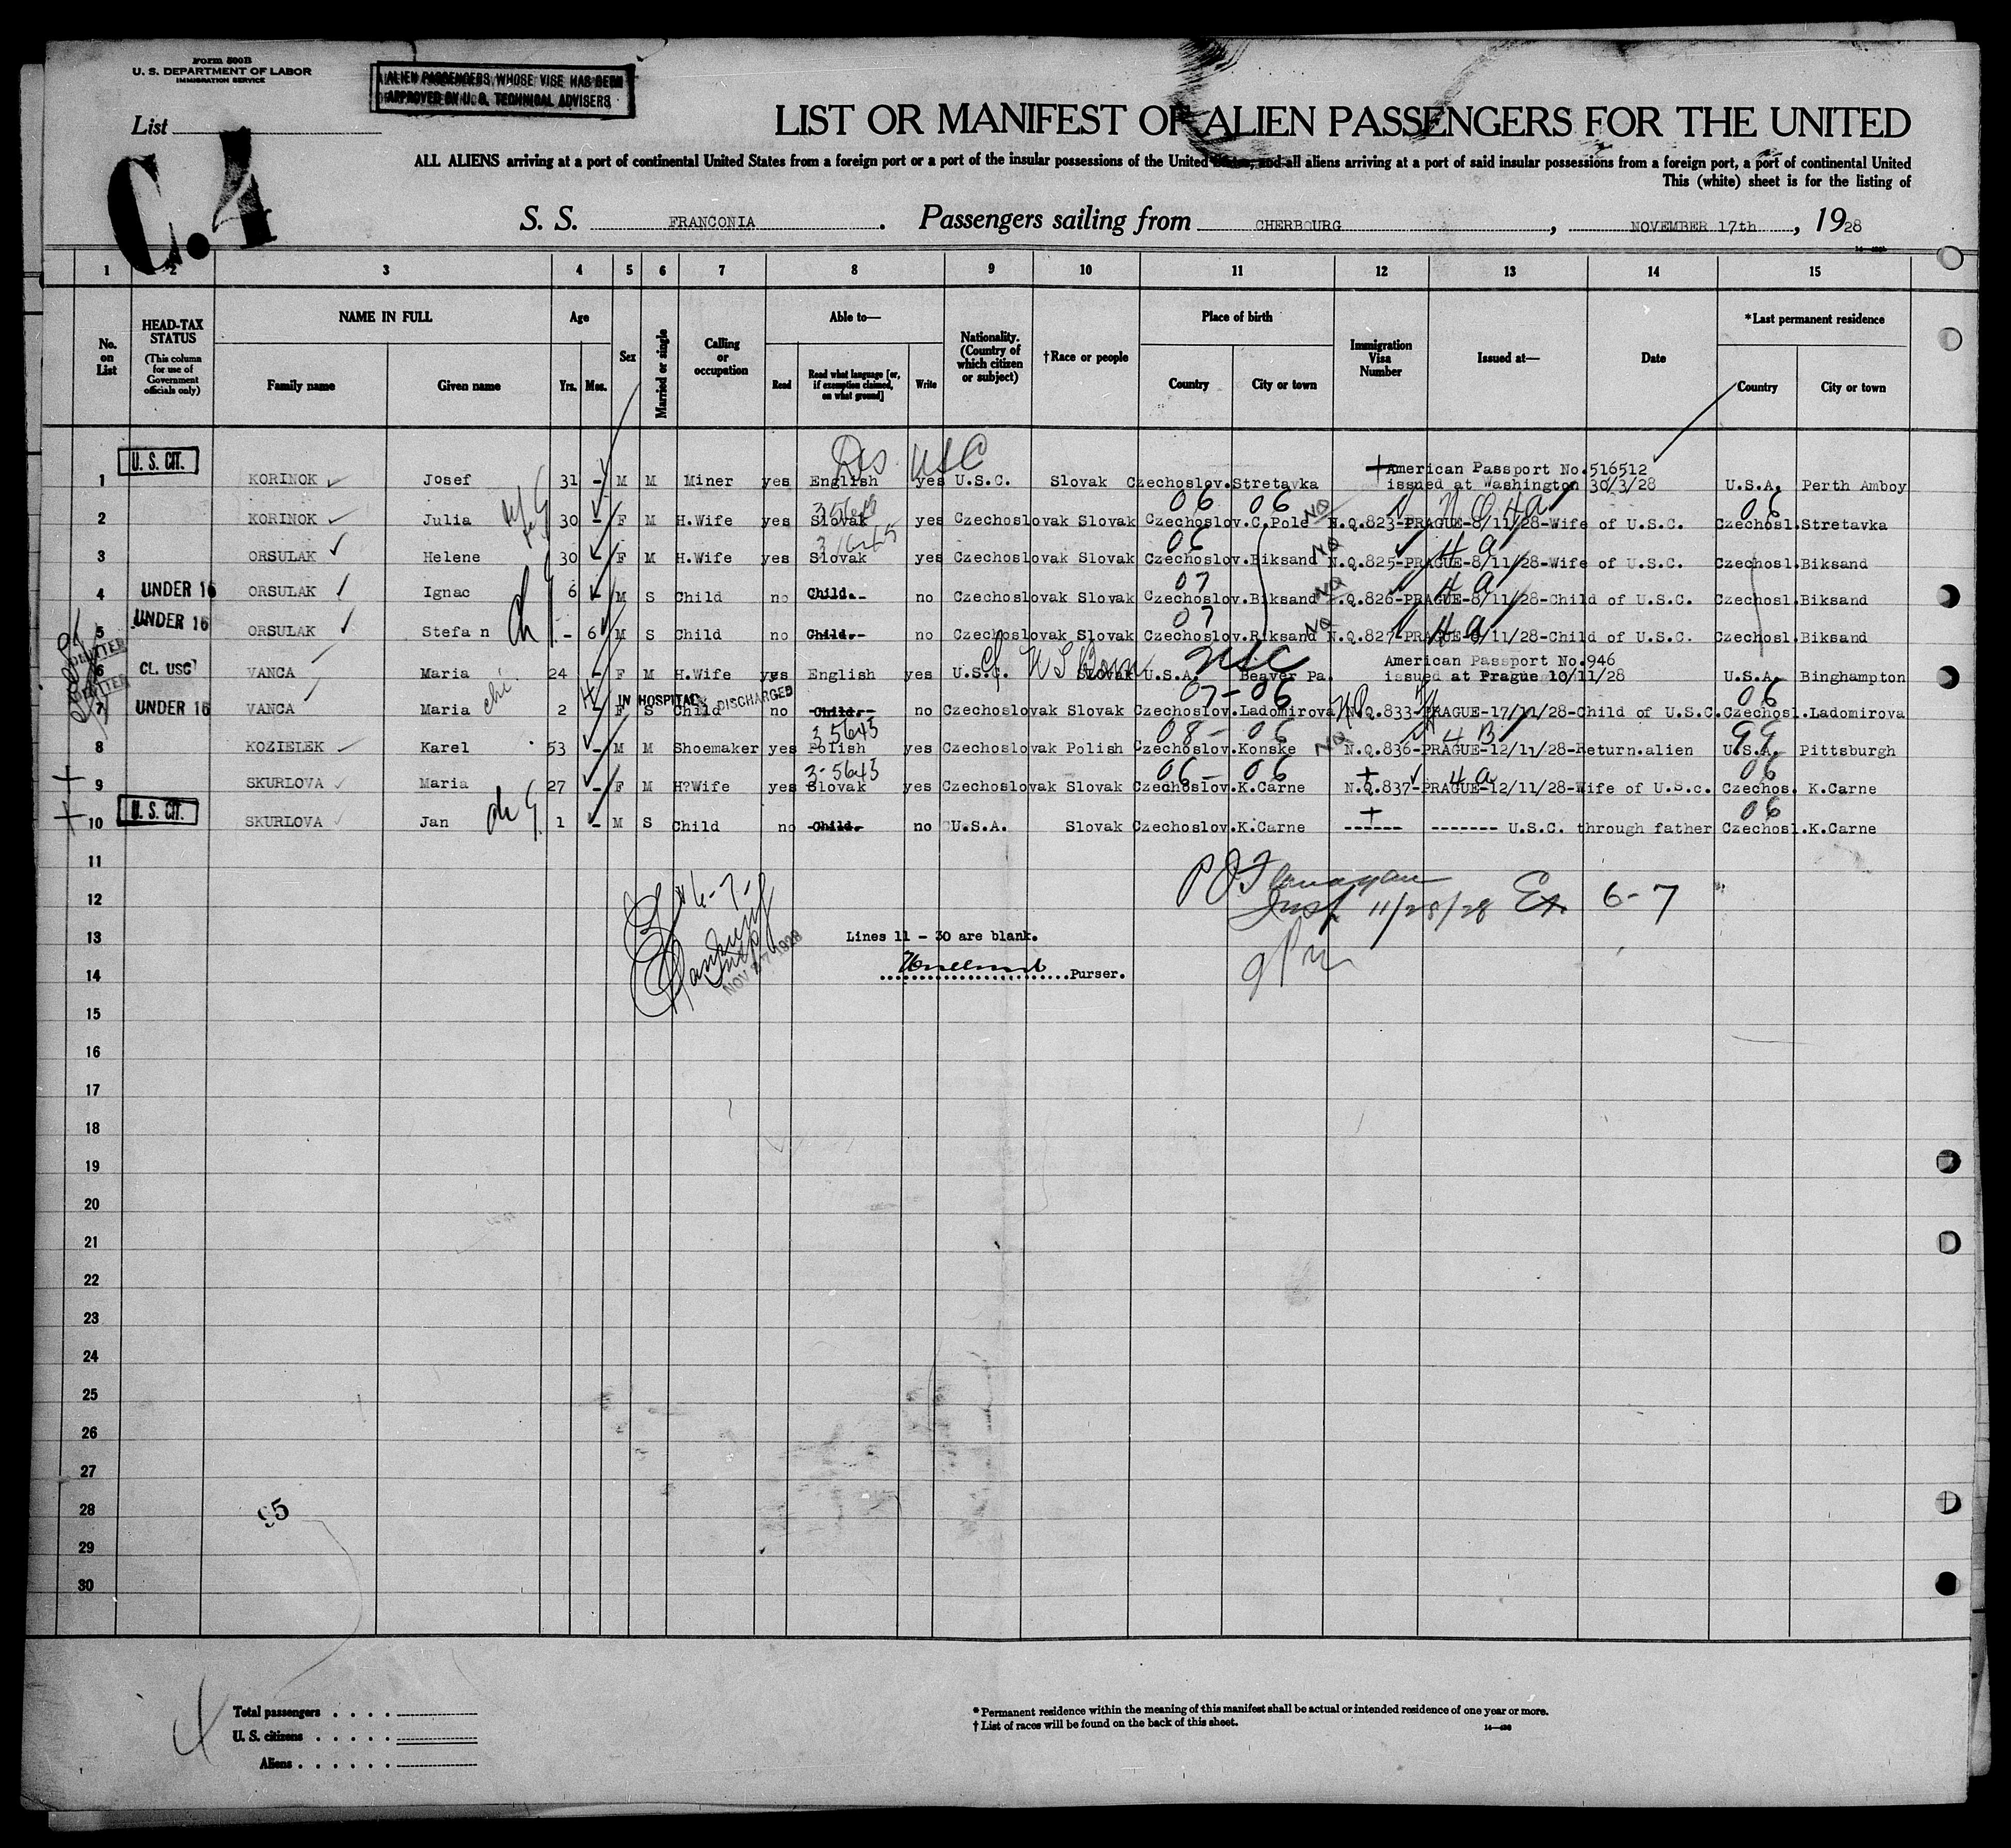 Form 500B
U. S. DEPARTMENT OF LABOR
IMMIGRATION SERVICE
ALIEN PASSENGERS WHOSE VISE HAS BEEN
APPROVED BY U. S. TECHNICAL ADVISERS
List
C.4
LIST OR MANIFEST OF ALIEN PASSENGERS FOR THE UNITED
ALL ALIENS arriving at a port of continental United States from a foreign port or a port of the insular possessions of the United States, and all aliens arriving at a port of said insular possessions from a foreign port, a port of continental United
This (white) sheet is for the listing of
S. S. FRANCONIA. Passengers sailing from CHERBOURG, NOVEMBER 17th, 1928
1 2 3 4 5 6 7 8 9 10 11 12 13 14 15
No. on List
HEAD-TAX STATUS (This column for use of Government officials only)
NAME IN FULL
Family name Given name
Age
Yrs. Mos.
Sex
Married or single
Calling or occupation
Able to—
Read Read what language [or, if exemption claimed, on what ground] Write
Nationality. (Country of which citizen or subject)
†Race or people
Place of birth
Country City or town
Immigration Visa Number
Issued at—
Date
*Last permanent residence
Country City or town
Dis. USC
1 U. S. CIT. KORINOK Josef 31 - M M Miner yes English yes U.S.C. Slovak Czechoslov.Stretavka American Passport No.516512 issued at Washington 30/3/28 U.S.A. Perth Amboy
06 06 NQ 06
2 KORINOK Julia 30 - F M H.Wife yes Slovak yes Czechoslovak Slovak Czechoslov.C.Pole N.Q.823-PRAGUE-8/11/28-Wife of U.S.C. Czechosl.Stretavka
06 NQ 4a
3 ORSULAK Helene 30 - F M H.Wife yes Slovak yes Czechoslovak Slovak Czechoslov.Biksand N.Q.825-PRAGUE-8/11/28-Wife of U.S.C. Czechosl.Biksand
07 NQ 4a
4 UNDER 16 ORSULAK Ignac 6 - M S Child no Child.- no Czechoslovak Slovak Czechoslov.Biksand N.Q.826-PRAGUE-8/11/28-Child of U.S.C. Czechosl.Biksand
07 NQ 4a
5 UNDER 16 ORSULAK Stefan - 6 M S Child no Child.- no Czechoslovak Slovak Czechoslov.Biksand N.Q.827-PRAGUE-8/11/28-Child of U.S.C. Czechosl.Biksand
US Born USC
6 CL. USC VANCA Maria 24 - F M H.Wife yes English yes U.S.C. Slovak U.S.A. Beaver Pa. American Passport No.946 issued at Prague 10/11/28 U.S.A. Binghampton
IN HOSPITAL DISCHARGED 07-06 06
7 UNDER 16 VANCA Maria 2 - F S Child no Child.- no Czechoslovak Slovak Czechoslov.Ladomirova N.Q.833-PRAGUE-17/11/28-Child of U.S.C. Czechosl.Ladomirova
35643 08-06 NQ 4B 99
8 KOZIELEK Karel 53 - M M Shoemaker yes Polish yes Czechoslovak Polish Czechoslov.Konske N.Q.836-PRAGUE-12/11/28-Return.alien U.S.A. Pittsburgh
3-5643 06-06 4a 06
9 SKURLOVA Maria 27 - F M H?Wife yes Slovak yes Czechoslovak Slovak Czechoslov.K.Carne N.Q.837-PRAGUE-12/11/28-Wife of U.S.c. Czechos. K.Carne
06
10 U. S. CIT. SKURLOVA Jan 1 - M S Child no Child.- no U.S.A. Slovak Czechoslov.K.Carne ------ ------- U.S.C. through father Czechosl.K.Carne
11
12 Insp 11/28/28 Ex 6-7
13 Lines 11 - 30 are blank.
NOV 27 1928
14 Purser.
15
16
17
18
19
20
21
22
23
24
25
26
27
28 95
29
30
Total passengers . . . .
U. S. citizens . . . . .
Aliens . . . . . .
* Permanent residence within the meaning of this manifest shall be actual or intended residence of one year or more.
† List of races will be found on the back of this sheet.